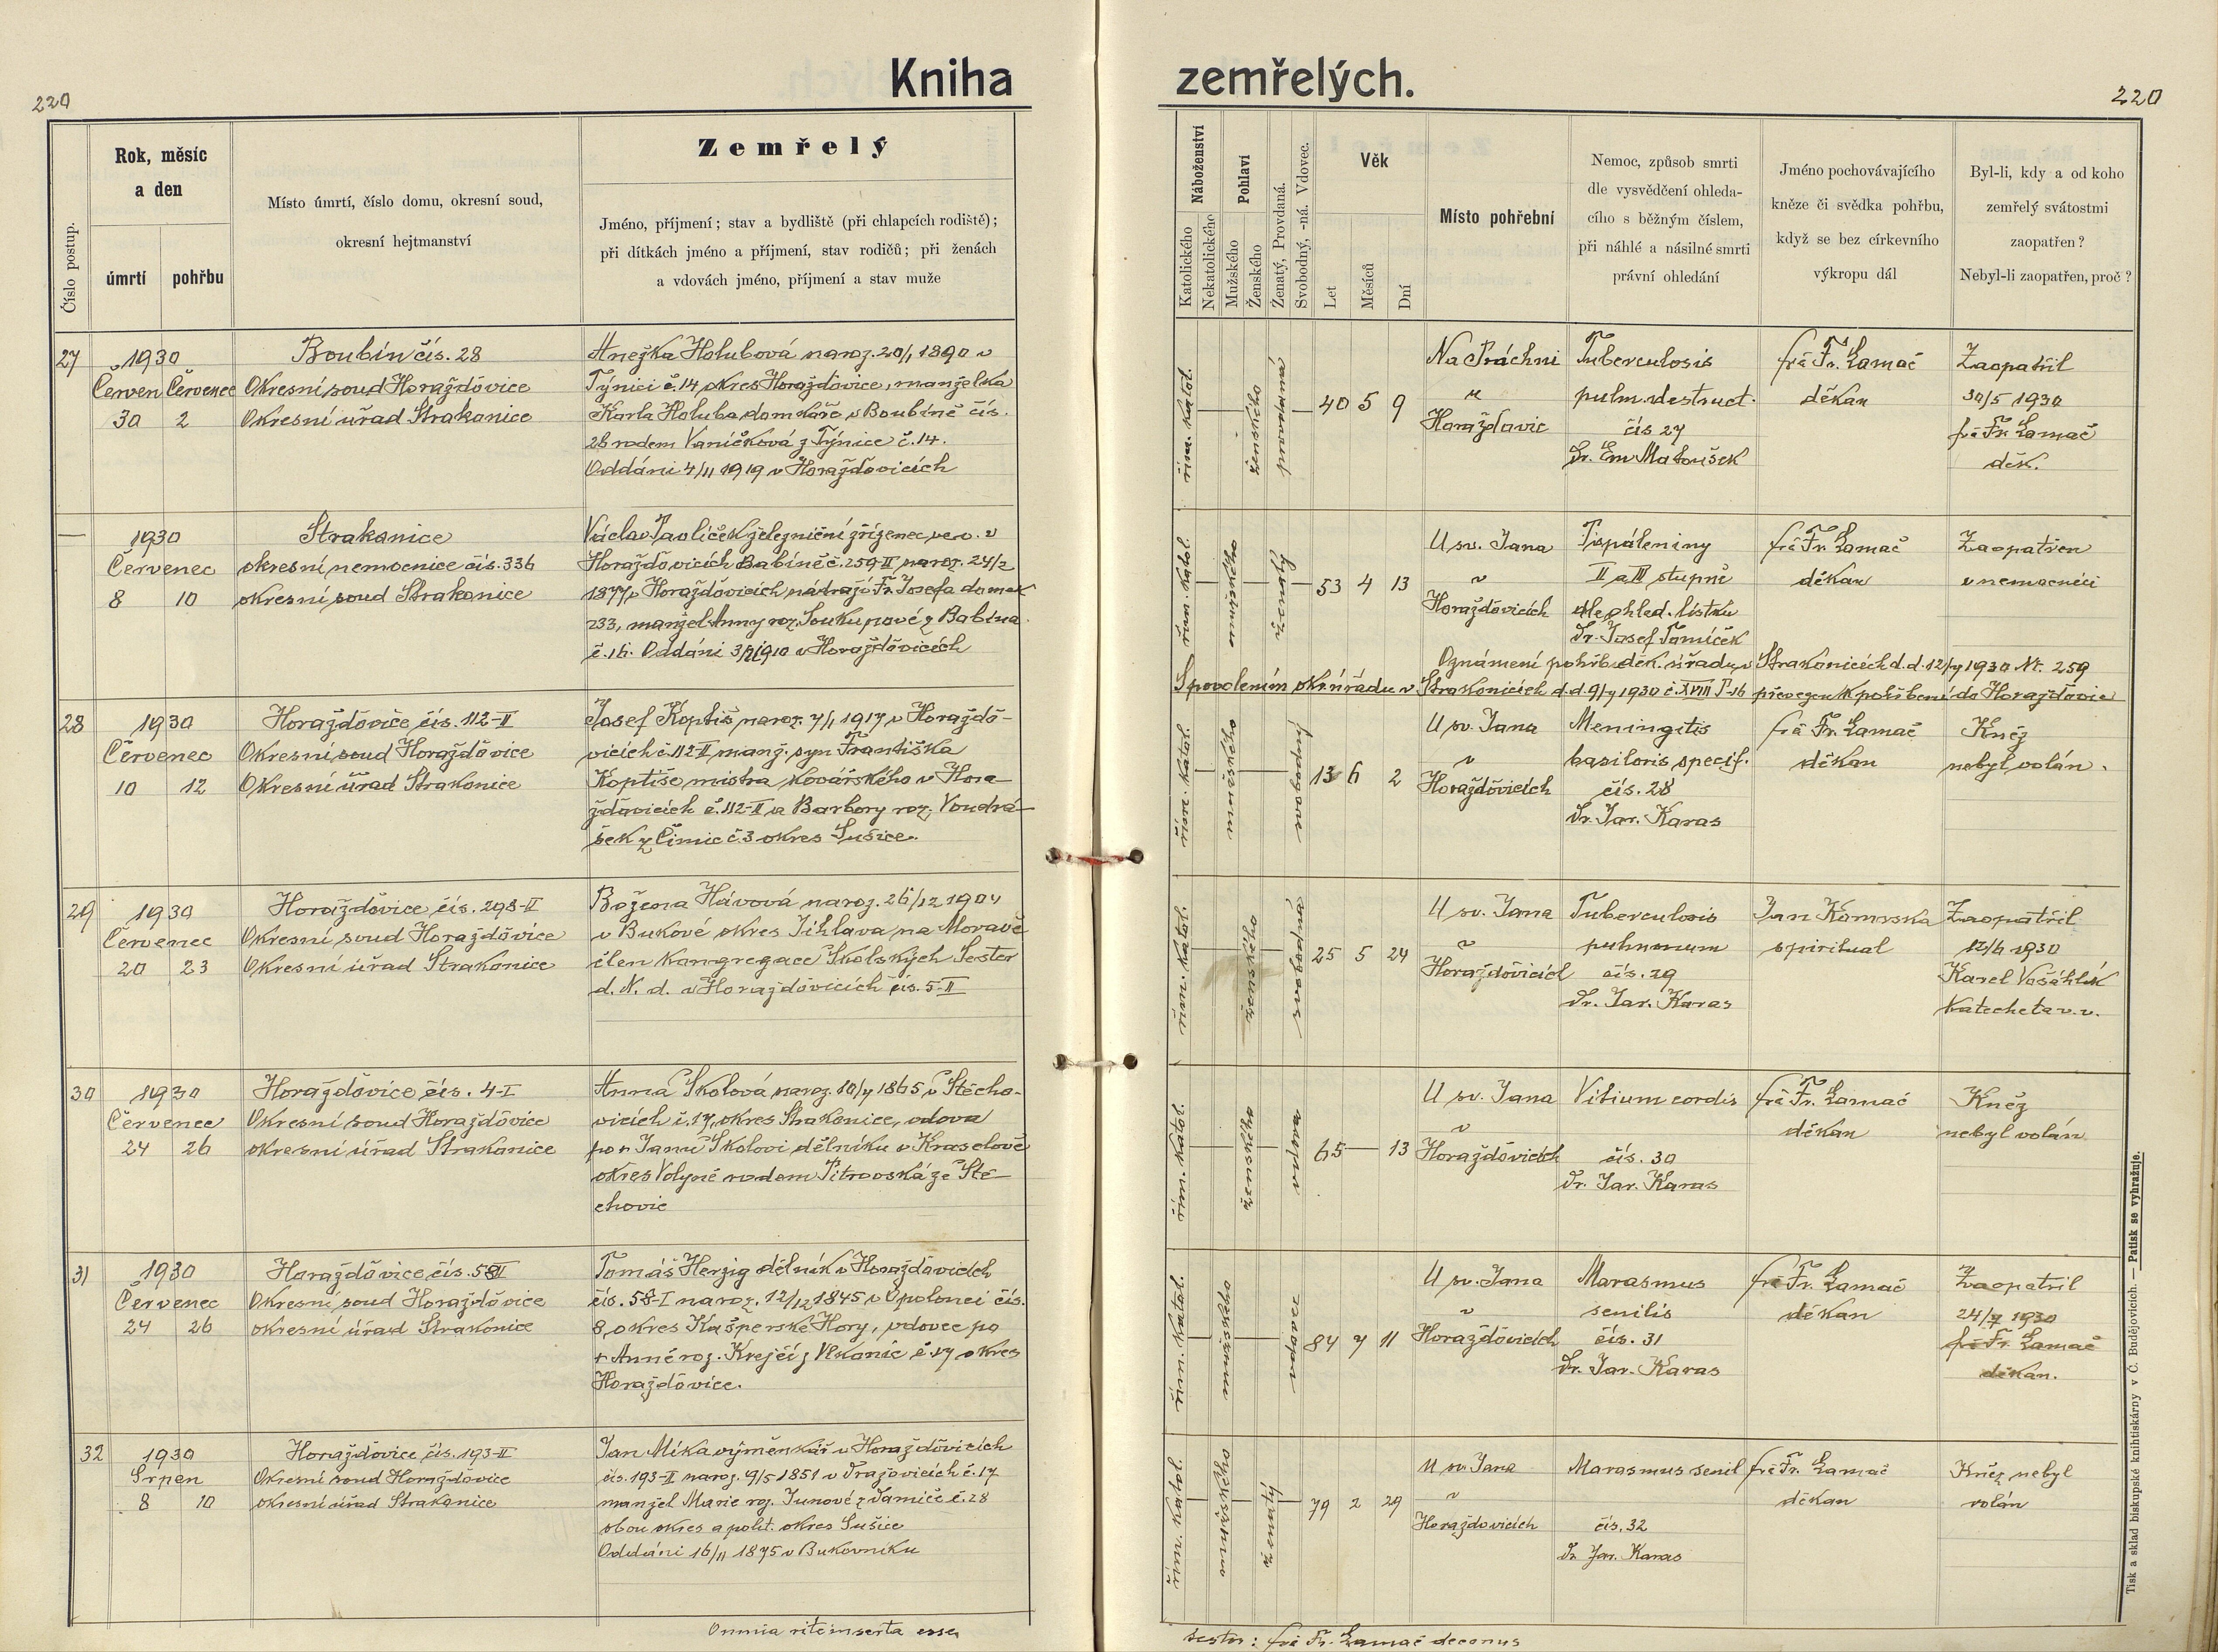 220
Kniha
zemřelých.
220
Číslo postup.
Rok, měsíc
a den
úmrtí
pohřbu
Místo úmrtí, číslo domu, okresní soud,
okresní hejtmanství
Zemřelý
Jméno, příjmení; stav a bydliště (při chlapcích rodiště);
při dítkách jméno a příjmení, stav rodičů; při ženách
a vdovách jméno, příjmení a stav muže
Náboženství
Katolického
Nekatolického
Pohlaví
Mužského
Ženského
Ženatý, Provdaná.
Svobodný, -ná. Vdovec.
Věk
Let
Měsíců
Dní
Místo pohřební
Nemoc, způsob smrti
dle vysvědčení ohleda-
cího s běžným číslem,
při náhlé a násilné smrti
právní ohledání
Jméno pochovávajícího
kněze či svědka pohřbu,
když se bez církevního
výkropu dál
Byl-li, kdy a od koho
zemřelý svátostmi
zaopatřen?
Nebyl-li zaopatřen, proč?
27
1930
Červen Červenec
30 2
Boubín čís. 28
Okresní soud Horažďovice
Okresní úřad Strakonice
Anežka Holubová naroz. 20/1 1890 v
Týnici č. 14 okres Horažďovice, manželka
Karla Holuba domkáře v Boubíně čís.
28 rodem Vaníčková z Týnice č. 14.
Oddáni 4/11 1919 v Horažďovicích
řím. katol.
ženského
provdaná
40 5 9
Na Práchni
u
Horažďovic
Tuberculosis
pulm. destruct.
čís 27
Dr. Em Matoušek
Fr. Lamač
děkan
Zaopatřil
30/5 1930
Fr. Lamač
děk.
—
1930
Červenec
8 10
Strakonice
okresní nemocnice čís. 336
okresní soud Strakonice
Václav Pavlíček železniční zřízenec
Horažďovicích Babíně č. 259-II naroz. 24/2
1877 v Horažďovicích nádraží Fr. Josefa domek
233, manžel Anny roz. Soukupové z Babína
č. 16. Oddáni 1910 v Horažďovicích
řím. katol.
mužského
ženatý
53 4 13
U sv. Jana
v
Horažďovicích
Popáleniny
II a III stupně
dle ohled. lístku
Dr. Josef Tomíček
Fr. Lamač
děkan
Zaopatřen
v nemocnici
Oznámení pohřb. děk. úřadu v Strakonicích d. d. 12/7 1930 Nr. 259
S povolením okr. úřadu v Strakonicích d. d. 9/7 1930 č. XVIII převezen k pohřbení do Horažďovic
28
1930
Červenec
10 12
Horažďovice čís. 112-II
Okresní soud Horažďovice
Okresní úřad Strakonice
Josef Koptiš naroz. 7/1 1917 v Horažďo-
vicích č. 112-II manž. syn Františka
Koptiše mistra kovářského v Hora-
žďovicích č. 112-II a Barbory roz. Voudrá-
šek z Čimic č. 3 okres Sušice.
řím. katol.
mužského
svobodný
13 6 2
U sv. Jana
v
Horažďovicích
Meningitis
basilaris specif.
čís. 28
Dr. Jar. Karas
Fr. Lamač
děkan
Kněz
nebyl volán.
29
1930
Červenec
20 23
Horažďovice čís. 298-II
Okresní soud Horažďovice
Okresní úřad Strakonice
Božena Hávová naroz. 26/12 1904
v Bukové okres Jihlava na Moravě
člen Kongregace Školských Sester
d. N. d. v Horažďovicích čís. 5-II
řím. katol.
ženského
svobodná
25 5 24
U sv. Jana
v
Horažďovicích
Tuberculosis
pulmonum
čís. 29
Dr. Jar. Karas
Jan Komrska
spirituál
Zaopatřil
12/6 1930
Karel Vošáhlík
katecheta v. v.
30
1930
Červenec
24 26
Horažďovice čís. 4-I
Okresní soud Horažďovice
okresní úřad Strakonice
Anna Skolová naroz. 10/7 1865 v Štěcho-
vicích č. 17, okres Strakonice, vdova
po + Janu Skolovi dělníku v Kraselově
okres Volyně rodem Pitrovská ze Ště-
chovic
řím. katol.
ženského
vdova
65 — 13
U sv. Jana
v
Horažďovicích
Vitium cordis
čís. 30
Dr. Jar. Karas
Fr. Lamač
děkan
Kněz
nebyl volán
31
1930
Červenec
24 26
Horažďovice čís. 58
Okresní soud Horažďovice
okresní úřad Strakonice
Tomáš Herzig dělník v Horažďovicích
čís. 58-I naroz. 12/12 1845 v Opolenci čís.
8, okres Kašperské Hory, vdovec po
+ Anně roz. Krejčí z Vlkonic č. 17 okres
Horažďovice.
řím. katol.
mužského
vdovec
84 7 11
U sv. Jana
v
Horažďovicích
Marasmus
senilis
čís. 31
Dr. Jar. Karas
Fr. Lamač
děkan
Zaopatřil
24/7 1930
Fr. Lamač
děkan.
32
1930
Srpen
8 10
Horažďovice čís. 193-II
Okresní soud Horažďovice
okresní úřad Strakonice
Jan Míka výměnkář v Horažďovicích
čís. 193-II naroz. 9/5 1851 v Dražovicích č. 17
manžel Marie roz. Junové z Damíče č. 28
obou okres a polit. okres Sušice
Oddáni 16/11 1875 v Bukovníku
řím. katol.
mužského
ženatý
79 2 29
U sv. Jana
v
Horažďovicích
Marasmus senil
čís. 32
Dr Jar. Karas
Fr. Lamač
děkan
Kněz nebyl
volán
Omnia rite inserta esse
testor: Fr. Lamač decanus
Tisk a sklad biskupské knihtiskárny v Č. Budějovicích. — Patisk se vyhražuje.